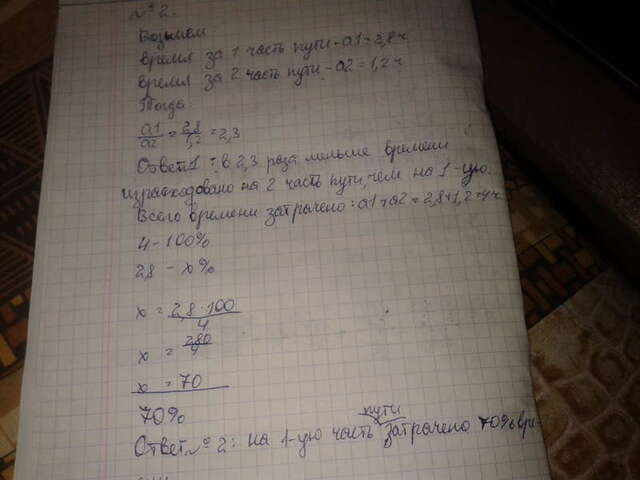 №2.
Возьмем
время за 1 часть пути - a1 = 2,8 ч
время за 2 часть пути - a2 = 1,2 ч
Тогда
a1/a2 = 2,8/1,2 = 2,3
Ответ 1: в 2,3 раза меньше времени
израсходовано на 2 часть пути, чем на 1-ую.
Всего времени затрачено: a1 + a2 = 2,8 + 1,2 = 4 ч
4 - 100%
2,8 - x%
x = 2,8·100/4
x = 280/4
x = 70
70%
Ответ №2: на 1-ую часть пути затрачено 70% вре-